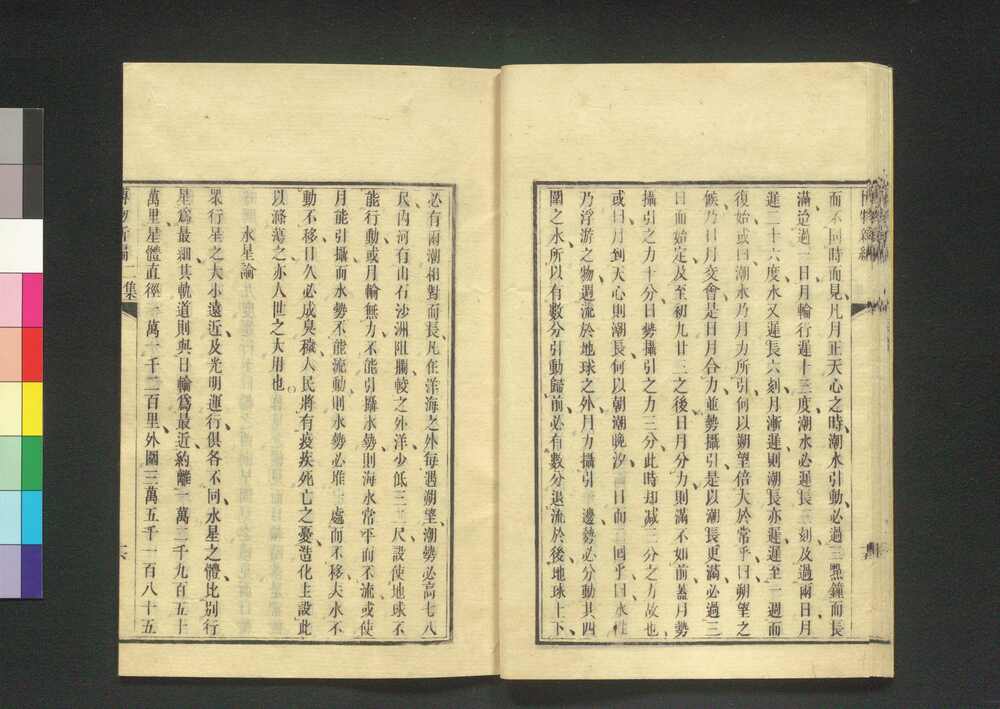 而不同時而見凡月正天心之時潮水引動必過三點鐘而長
滿迨過一日月輪行遲十三度潮水必遲長三刻及過兩日月
遲二十六度水又遲長六刻月漸遲則潮長亦遲遲至一週而
復始或曰潮水乃月力所引何以朔望倍大於常乎曰朔望之
候乃日月交會是日月合力並勢攝引是以潮長更滿必過三
日而始定及至初九廿三之後日月分力則滿不如前蓋月勢
攝引之力十分日勢攝引之力三分此時却減三分之力故也
或曰月到天心則潮長何以朝潮晚汐一日而二回乎曰水性
乃浮游之物週流於地球之外月力攝引一邊勢必分動其四
圍之水所以有數分引動歸前必有數分退流於後地球上下
必有兩潮相對而長凡在洋海之外每遇朔望潮勢必高七八
尺內河有山石沙洲阻攔較之外洋少低三二尺設使地球不
能行動或月輪無力不能引攝水勢則海水常平而不流或使
月能引攝而水勢不能流動則水勢必堆一處而不移夫水不
動不移日久必成臭穢人民將有疫疾死亡之憂造化主設此
以滌蕩之亦人世之大用也
水星論
眾行星之大小遠近及光明運行俱各不同水星之體比別行
星為最細其軌道則與日輪為最近約離一萬二千九百五十
萬里星體直徑一萬一千二百里外圍三萬五千一百八十五
博物新編二集